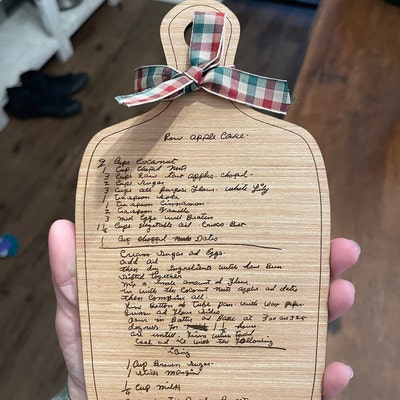 Raw Apple Cake
2 Cups Coconut
1 Cup Choped Nuts
3 Cups Raw tart apples chopd
2 Cups Sugar
3 Cups all purpose Flour White Lily
1 teaspoon Soda
1 teaspoon Cinnamon
2 teaspoon Vanilla
3 med Eggs well Beaten
1 1/4 Cups Vegetable oil
1 Cup chopped Dates
Cream Sugar ad Eggs
Add oil
then dry ingredients
Sifted together
Mix a small amount of Flour
in with the Coconut Nuts apples ad dates
then Combine all
Line Bottom of Tube pan with Wax paper
Grease ad Flour Sides
Pour in Batter ad Bake at 300 or 325
degrees for 1 1/2 hours
or until firm
Cool ad ice with the Following
Icing
1 Cup Brown Sugar
1 Stick Margine
1/4 Cup Milk